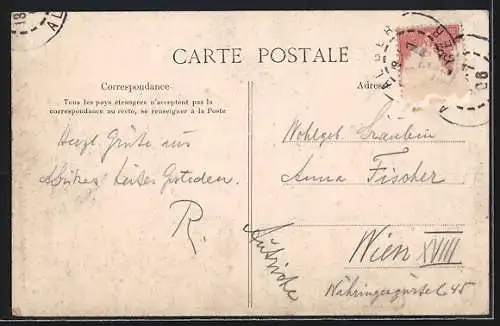 CARTE POSTALE
Correspondance
Tous les pays étrangers n'acceptent pas la
correspondance au recto, se renseigner à la Poste
Adres
18
AL
ALGER
18 7
06
Herzl. Grüße aus
R.
Wohlgeb. Fräulein
Anna Fischer
Wien XVIII
Währingergürtel 45
Autriche